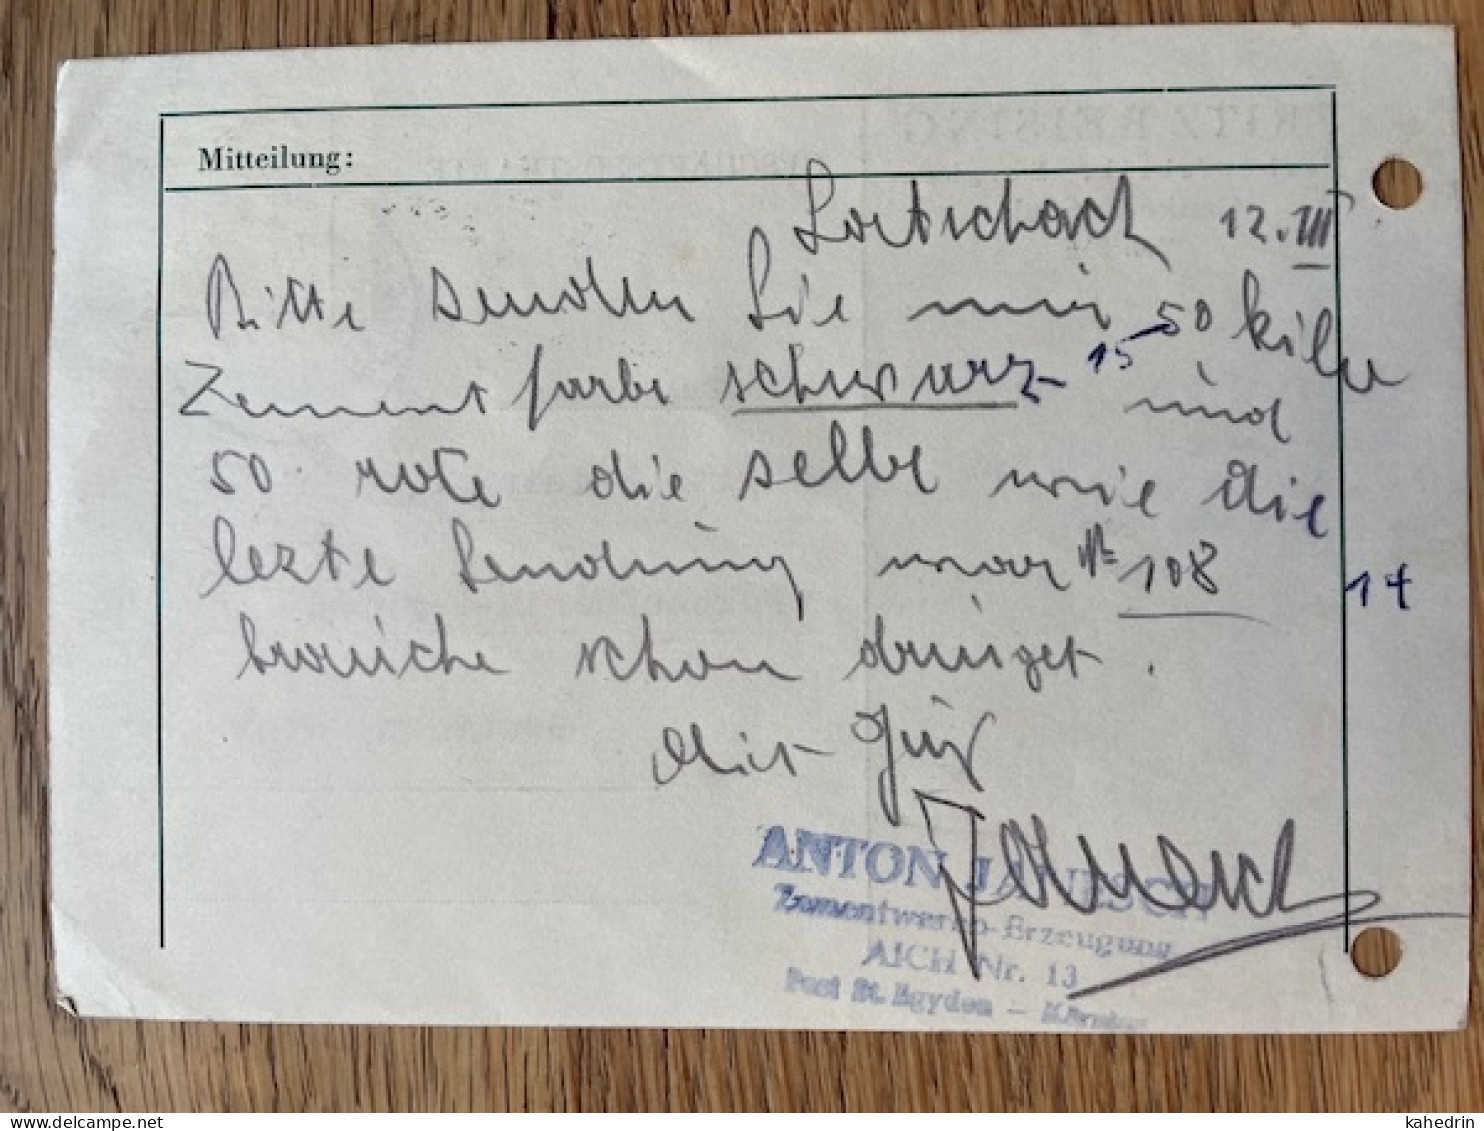 Mitteilung:
Lortschach 12.III
Bitte senden Sie mir 50 kilo
Zement farbe schwarz 15 und
50 rote die selbe wie die
lezte Sendung war № 108 14
brauche schon dringet.
Mit Gruß
Janesch
ANTON JANESCH
Zementwaren-Erzeugung
AICH Nr. 13
Post St. Egyden – Kärnten
kahedrin